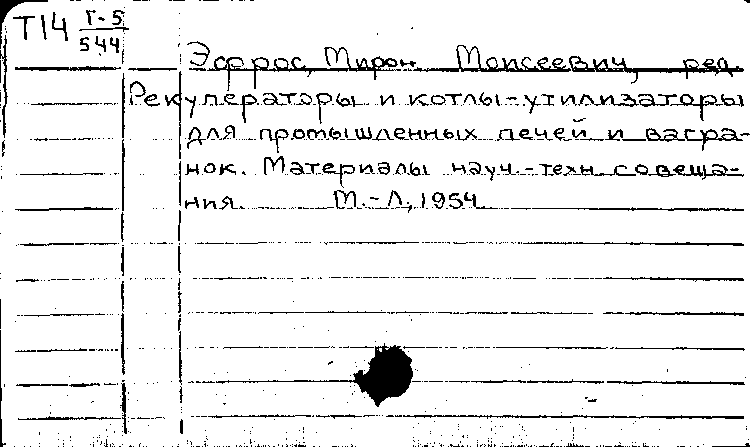 Т14 Г-5
544
Эфрос, Мирон Моисеевич, ред.
Рекуператоры и котлы-утилизаторы
для промышленных печей и вагра-
нок. Материалы науч.-техн. совеща-
ния. М.-Л., 1954